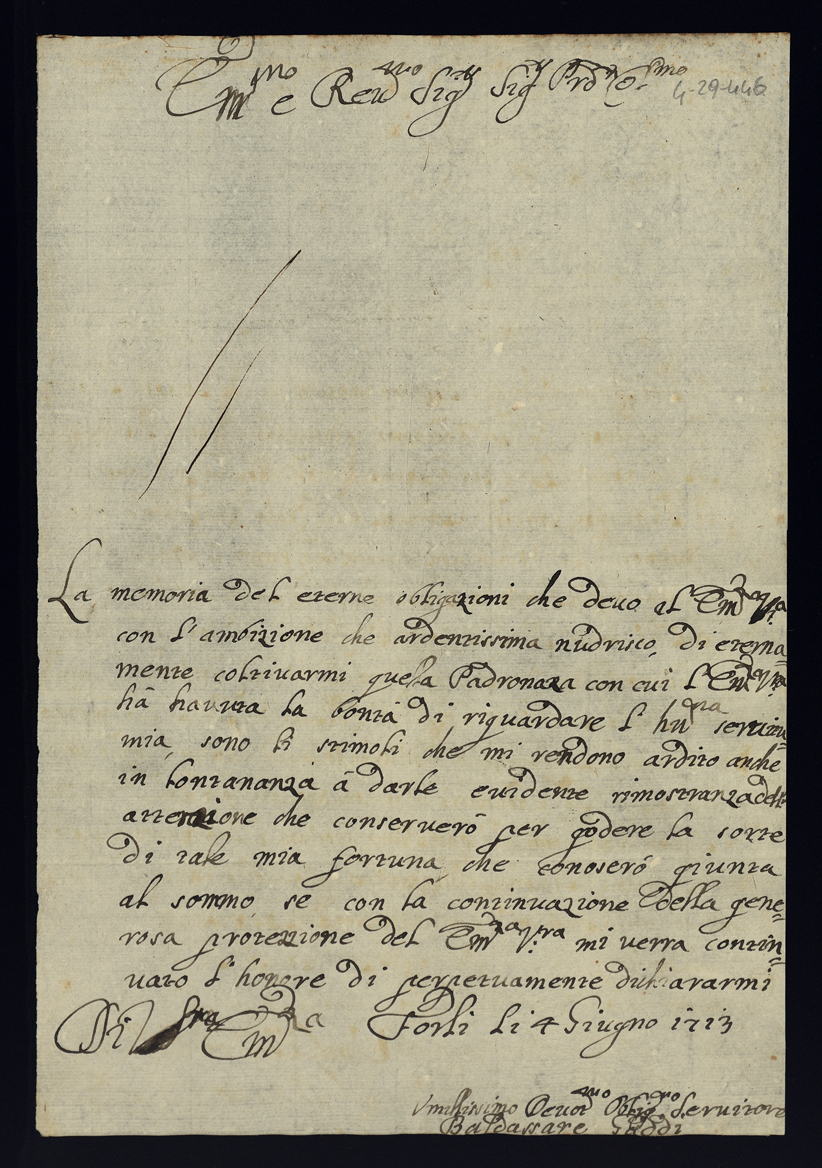 Em.mo e Reu.mo Sig.r Sig.r Prõn Co.mo
4-29-446
La memoria del eterne obligazioni che deuo al Em.za V.ra
con l'ambizione che ardentissima nudrisco, di eterna=
mente coltiuarmi quella Padronaza con cui l'Em.za V.ra
hà hauuta la bontà di riguardare l' hu.ma seruitu
mia, sono li stimoli che mi rendono ardito anche
in lontananza à darle euidente rimostranza dell
attenzione che conseruerò per godere la sorte
di tale mia fortuna, che conoserò giunta
al sommo se con la continuazione della gene=
rosa protezzione del Em.za V.ra mi verra contin=
uato l'honore di perpetuamente dichiararmi
Di V.ra Em.za Forli li 4 Giugno 1713
Vmilissimo Deuot.mo Oblig.mo Seruitore
Baldassare Gaddi